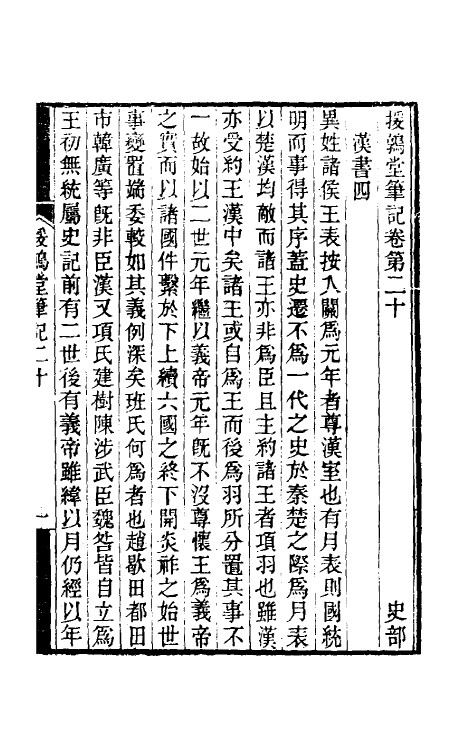 援鶉堂筆記卷第二十　史部
漢書四
異姓諸侯王表按入關爲元年者尊漢室也有月表則國統
明而事得其序蓋史遷不爲一代之史於秦楚之際爲月表
以楚漢均敵而諸王亦非爲臣且主約諸王者項羽也雖漢
亦受約王漢中矣諸王或自爲王而後爲羽所分置其事不
一故始以二世元年繼以義帝元年旣不沒尊懷王爲義帝
之實而以諸國件繫於下上續六國之終下開炎祚之始世
事變置端委較如其義例深矣班氏何爲者也趙歇田都田
市韓廣等旣非臣漢又項氏建樹陳涉武臣魏咎皆自立爲
王初無統屬史記前有二世後有義帝雖緯以月仍經以年
援鶉堂筆記二十　一